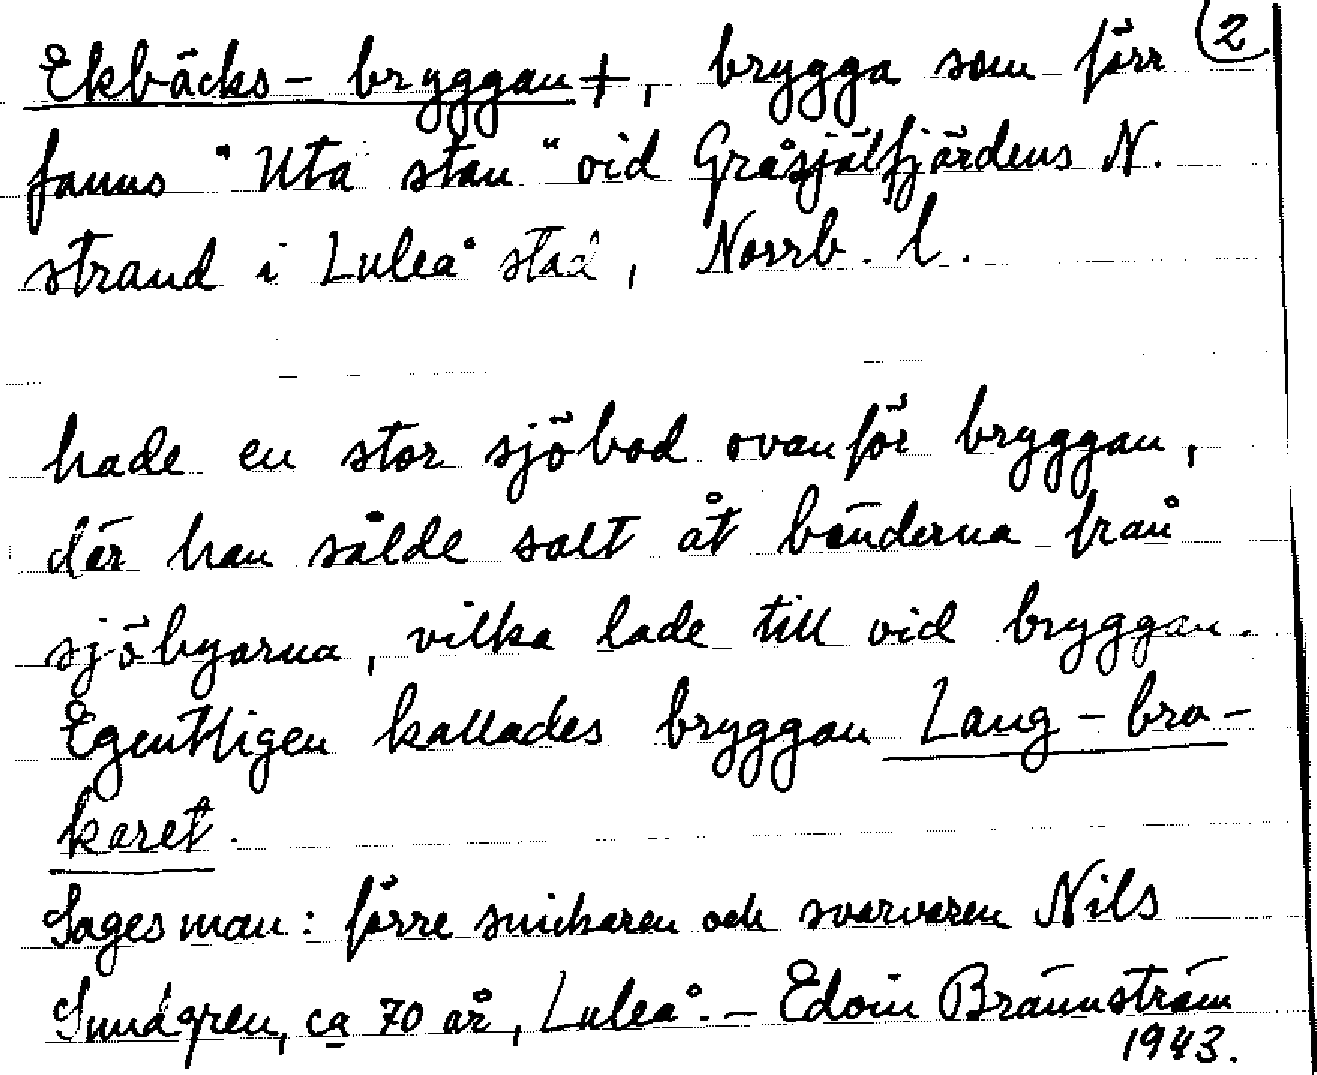 Ekbäcks-bryggan +, brygga som förr (2)
fanns "Uta stan" vid Gråsjälfjärdens N.
strand i Luleå stad, Norrb. l.
hade en stor sjöbod ovanför bryggan,
där han sålde salt åt bönderna från
sjöbyarna, vilka lade till vid bryggan.
Egentligen kallades bryggan Lang-bro-
karet.
Sagesman: förre snickaren och svarvaren Nils
Sundgren, ca 70 år, Luleå. - Edvin Brännström
1943.